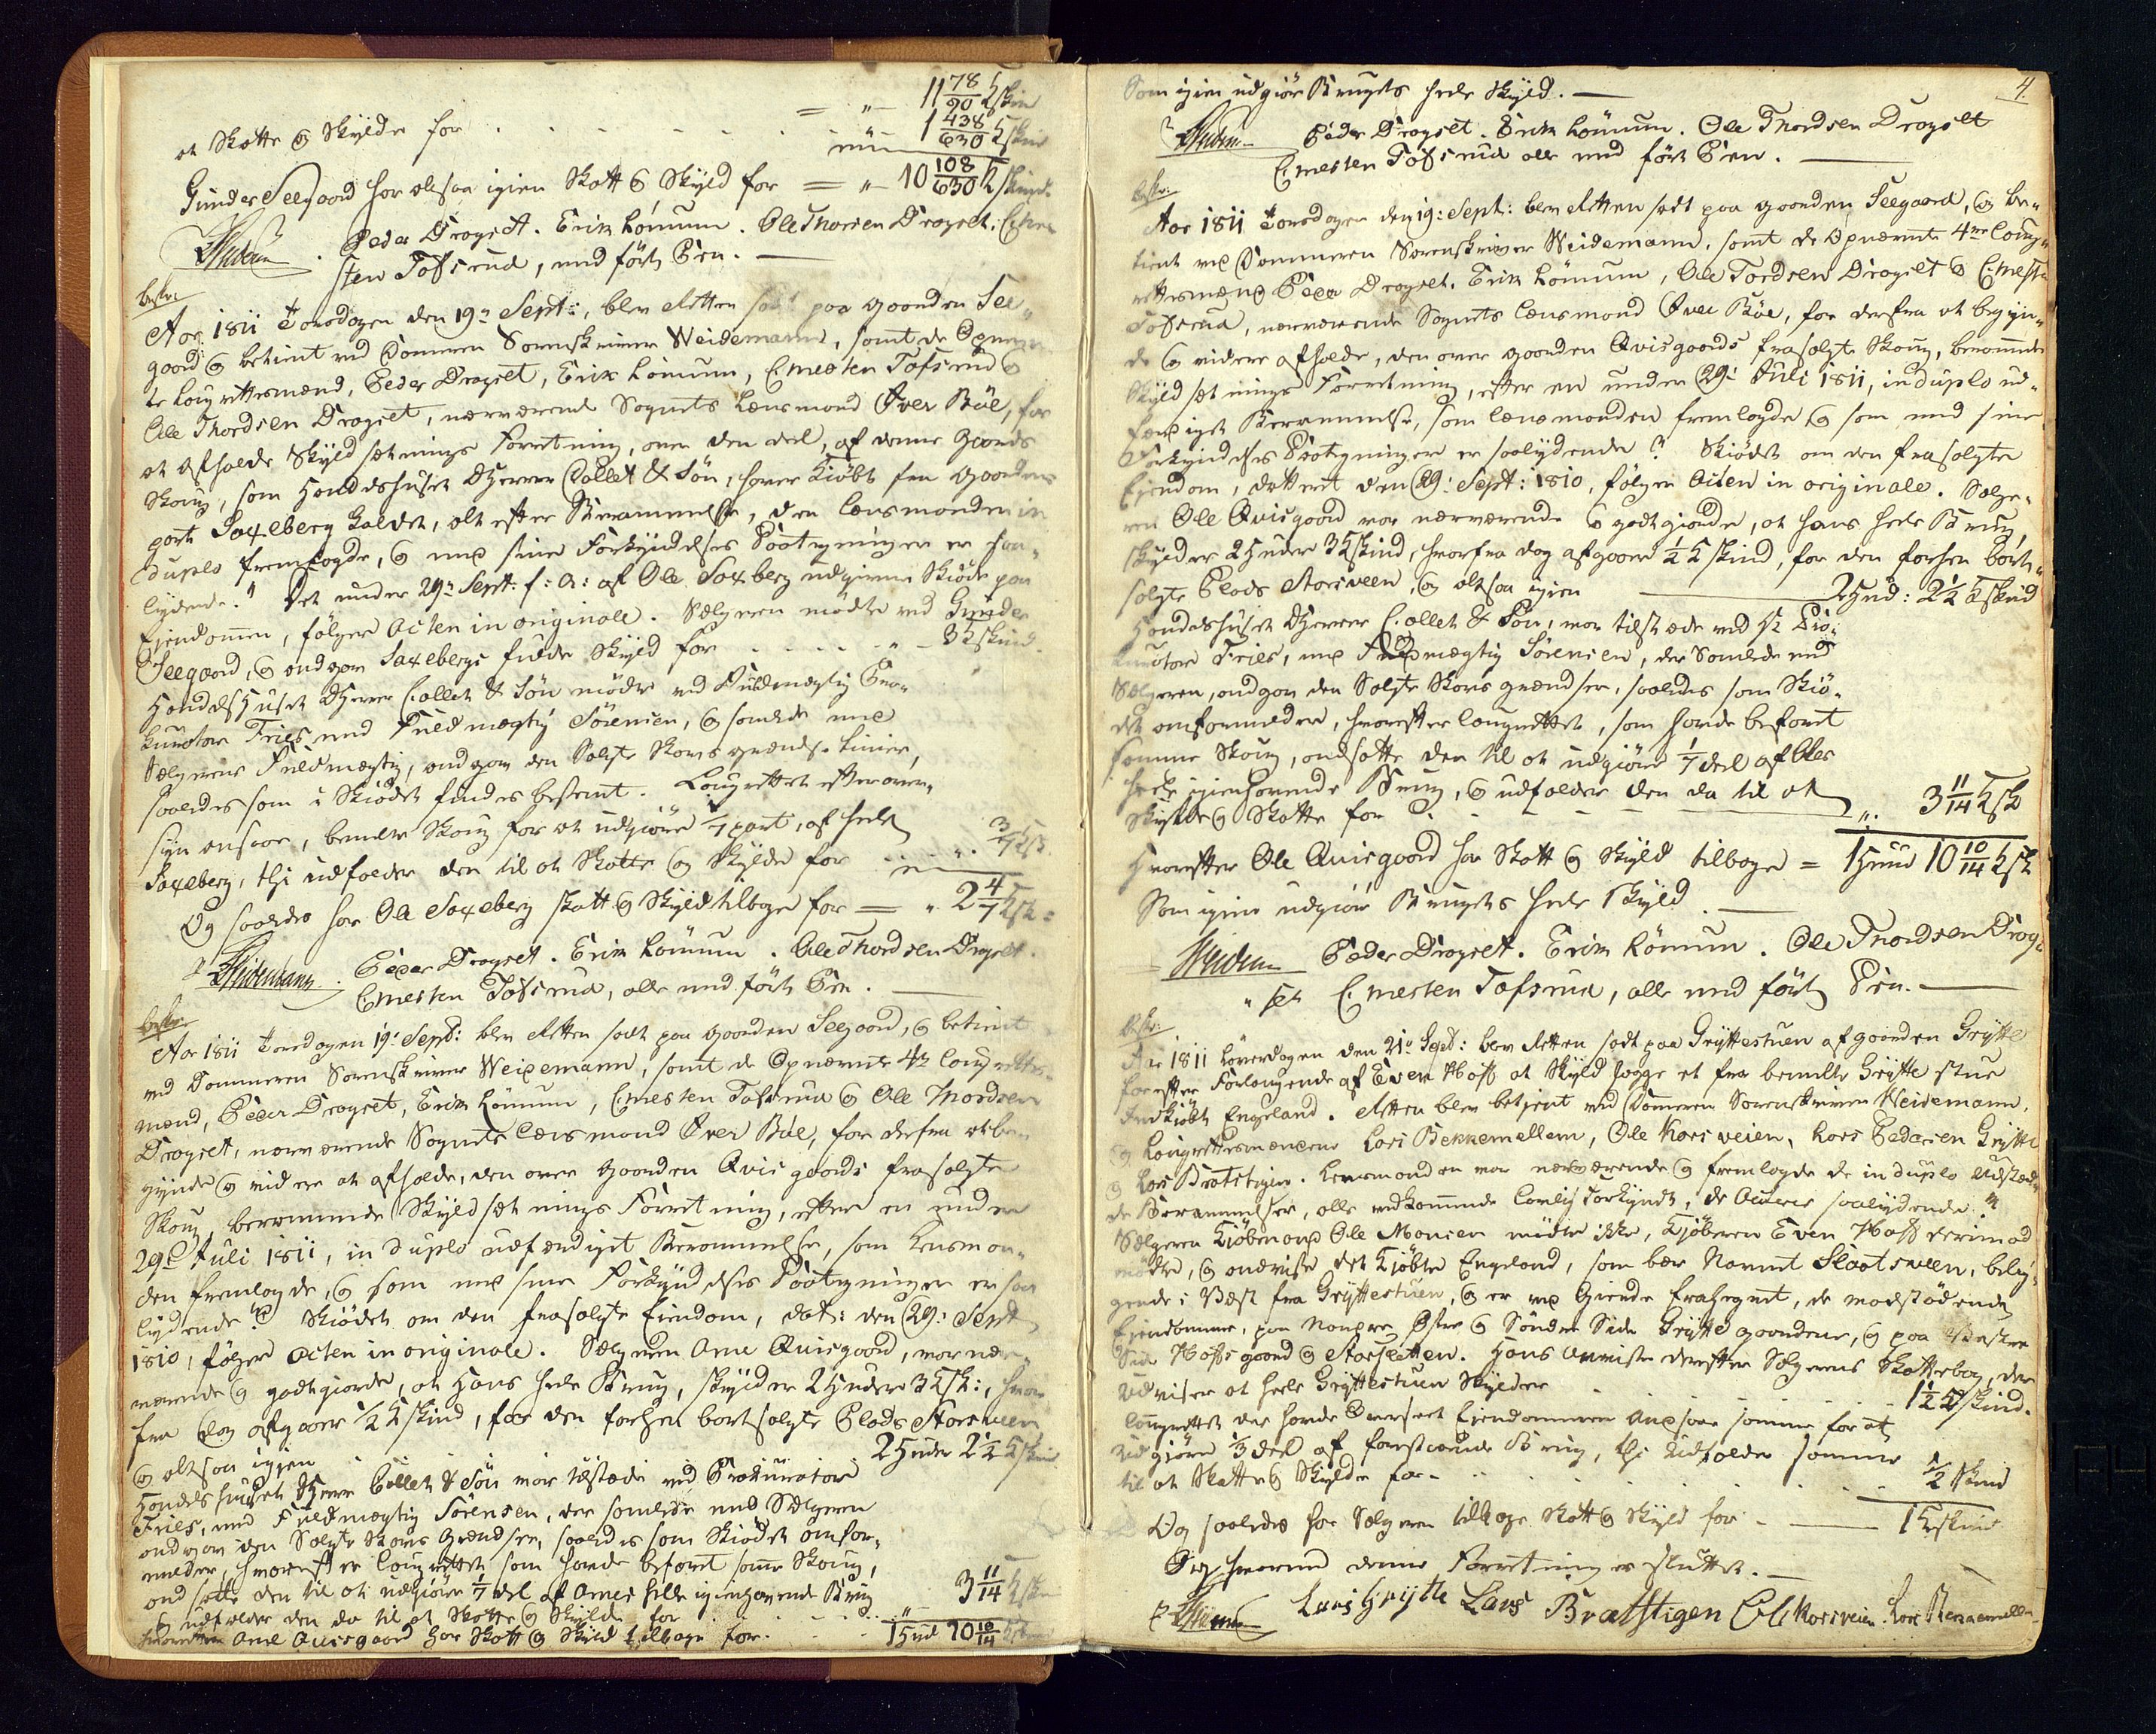 = " 11 78/90 ℔skin
at Skatte og Skylde for . . . . . . . 1 438/630 ℔skind
Gunder Seegaard har altsaa igien Skatt og Skyld for = " 10 108/630 ℔skind.
Weidemann. Peder Drogset. Erik Lömum. Ole Thorsen Drogset. Christen
Tofsrud, med förte Pen.
beskr:
Aar 1811 Torsdagen den 19de Sept:, blev Retten sadt paa Gaarden See-
gaard og betient ved Dommeren Sorenskriver Weidemann, samt de Opnævn-
te Laugrettesmænd, Peder Drogset, Erik Lömum, Christen Tofsrud og
Ole Thordsen Drogset, nærværende Sognets Lænsmand Iver Böe, for
at afholde Skyldsætnings Forretning, over den deel, af denne Gaards
Skoug, som Handelshuset Herrer Collett & Sön, haver kiöbt fra Gaardens
part Saxeberg kaldet, alt efter Berammelse, den Lænsmanden in
duplo fremlagde, og med sine Forkyndelses Paategninger er saa-
lydende." Det under 29de Sept: f: A: af Ole Saxberg udgivne Skiöde paa
Ejendommen, fölger Acten in originale. Sælgeren mödte ved Gunder
Seegaard, og angav Saxebergs fulde Skyld for . . . . . " 3 ℔skind
Handelshuset Herrer Collett & Sön mödte ved Fuldmægtig Pro-
kurator Friis, med Fuldmægtig Sörensen, og samtlede med
Sælgerens Fuldmægtig, angav den Solgte Skovs grændse Linier,
saaledes som i Skiödet findes bestemt. Laugrettet efter over-
syn ansaae, bemelte Skoug for at udgiöre 1/7 part, af hele
Saxeberg, thi udfolder den til at Skatte og Skylde for . . . " 3/7 ℔sk.
Og saaledes har Ole Saxeberg skatt og Skyld tilbage for = " 2 4/7 ℔sk:
Weidemann. Peder Drogset. Erik Lömum. Ole Thordsen Drogset.
Christen Tofsrud, alle med förte Pen.
beskr:
Aar 1811 Torsdagen 19de Sept: blev Retten sadt paa Gaarden Seegaard, og betient
ved Dommeren Sorenskriver Weidemann, samt de Opnævnte 4re Laugrettes-
mænd, Peder Drogset, Erik Lömum, Christen Tofsrud og Ole Thordsen
Drogset, nærværende Sognets Lænsmand Iver Böe, for derfra at be-
gynde og videre at afholde, den over Gaarden Qvisgaards frasolgte
Skoug, berammede Skyldsætnings Forretning, efter en under
29de Juli 1811, in duplo udfærdiget Berammelse, som Lensman-
den fremlagde, og som med sine Forkyndelses Paategninger er saa
lydende". Skiödet om den frasolgte Eiendom, dat: den 29de Sept
1810, fölger Acten in originale. Sælgeren Arne Quisgaard, var nær-
værende og godtgiorde, at Hans hele Brug, skylder 2 Huder 3 ℔sk:, hvor
fra dog afgaaer 1/2 ℔skind, for den forhen bortsolgte Plads Storsveen
og altsaa igien 2 Huder 2 1/2 ℔skind
Handelshuset Herrer Collett & Sön var tilstæde ved Prokurator
Friis, med Fuldmægtig Sörensen, der samlede med Sælgeren
angav den Solgte Skovs Grændser, saaledes som Skiödet omfor-
melder, hvorefter Laugrettet som havde befaret samme Skoug,
ansatte den til at udgiöre 1/7 del af Arnes hele igienhavende Brug
og udfolder den da til at Skatte og Skylde for . . . . " 3 11/14 ℔skin
hvorefter Arne Quisgaard har Skatt og Skyld tilbage for . . 1 Hud 10 10/14 ℔skin
4
Som igien udgiör Brugets hele Skyld.
Weidemann Peder Drogset. Erik Lömum. Ole Thordsen Drogset
Christen Tofsrud alle med fört Pen.
beskr:
Aar 1811 Torsdagen den 19: Sept: blev Retten sadt paa Gaarden Seegaard, og be-
tient ved Dommeren Sorenskriver Weidemann, samt de Opnævnte 4re Laug-
rettesmænd Peder Drogset, Erik Lömum, Ole Tordsen Drogset og Christen
Tofsrud, nærværende Sognets Lænsmand Iver Böe, for derfra at begyn-
de og videre afholde, den over Gaarden Qvisgaards frasolgte Skoug, berammede
Skyldsætnings Forretning, efter en under 29de Juli 1811, in duplo ud-
færdiget Berammelse, som Lænsmanden fremlagde og som med sine
Forkyndelses Paategninger er saalydende." Skiödet om den frasolgte
Ejendom, dateret den 29: Sept: 1810, fölger Acten in originale. Sælge-
ren Ole Quisgaard var nærværende og godtgiorde, at hans hele Brug
skylder 2 Huder 3 ℔skind, hvorfra dog afgaaer 1/2 ℔skind, for den forhen bort-
solgte Plads Storsveen, og altsaa igien 2 Hud: 2 1/2 ℔skind
Handelshuset Herrer Collett & Sön, var tilstæde ved Hr Pro-
kurator Friis, med Fuldmægtig Sörensen, der samlede med
Sælgeren, angav den Solgte Skovs grændser, saaledes som Skiö-
det omformelder, hvorefter Laugrettet, som havde befaret
samme Skoug, ansatte den til at udgiöre 1/7 deel af Oles
hele igienhavende Brug, og udfolder den da til at
Skylde og Skatte for . . . " 3 11/14 ℔sk
Hvorefter Ole Quisgaard har Skatt og Skyld tilbage = 1 Hud 10 10/14 ℔sk
Som igien udgiör Brugets hele Skyld.
Weidemann Peder Drogset. Erik Lömum. Ole Thordsen Drog-
set Christen Tofsrud, alle med fört Pen.
beskr:
Aar 1811 Löverdagen den 21de Sept: blev Retten sadt paa Gryttestuen af Gaarden Grytte
for efter Forlangende af Even Hoff at Skyldlægge et fra bemelte Grytte stue
Indkiöbt Engeland. Retten blev betjent ved Dommeren Sorenskriver Weidemann,
og Laugrettesmændene Lars Bekkemellem, Ole Korsveien, Lars Pedersen Grytte
og Lars Bratstigen. Lensmanden var nærværende og fremlagde de in duplo Udstæd-
de Berammelser, alle vedkommende lovlig Forkyndt, de Acteres saalydende."
Sælgeren Ole Monsen mödte ikke, Kjöberen Even Hoff derimod
mödte, og anviste det Kjöbte Engeland, som bær Navnet Slaatsveen, belig-
gende i Væst fra Gryttestuen, og er ved Gierde frahegnet, de modstödende
Eiendomme, paa Nordre Östre og Söndre Side Grytte Gaardene, og paa Vestre
Side Hoffs gaard og Storsletten. Hans anviste derefter Sælgerens Skattebog, der
Udviser at hele Gryttestuen Skylder 1 1/2 ℔skind.
Laugrettet der havde Overseet Ejendommen ansaae samme for at
Udgiöre 1/3 del af forstaaende Brug, thi Udfolder samme
til at Skatte og Skylde for . . . . . 1/2 skind
Og saaledes har Sælgeren tilbage Skatt og Skyld for - 1 ℔skind
Og hvormed denne Forretning er sluttet.
Weidemann Lars Grytte Lars Bratstigen Ole Korsveien. Lars Bekkemellem